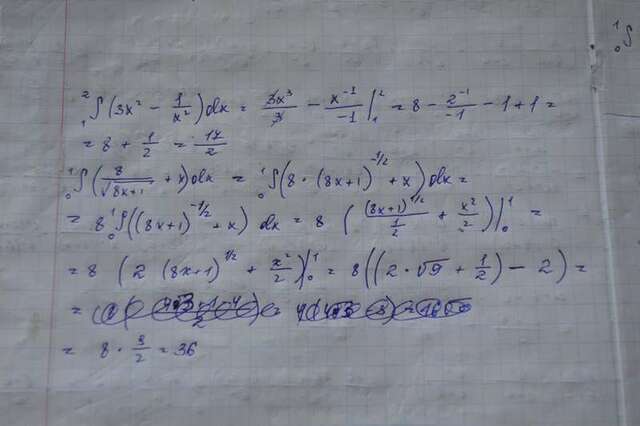 ₁²∫(3x² − 1/x²)dx = 3x³/3 − x⁻¹/−1 |₁² = 8 − 2⁻¹/−1 − 1 + 1 =
= 8 + 1/2 = 17/2
₀¹∫(8/√(8x+1) + x)dx = ₀¹∫(8 · (8x+1)^(-1/2) + x)dx =
= 8 ₀¹∫((8x+1)^(-1/2) + x) dx = 8 ((8x+1)^(1/2)/(1/2) + x²/2)|₀¹ =
= 8 (2 (8x+1)^(1/2) + x²/2)|₀¹ = 8((2·√9 + 1/2) − 2) =
=
= 8 · 9/2 = 36
₀¹∫